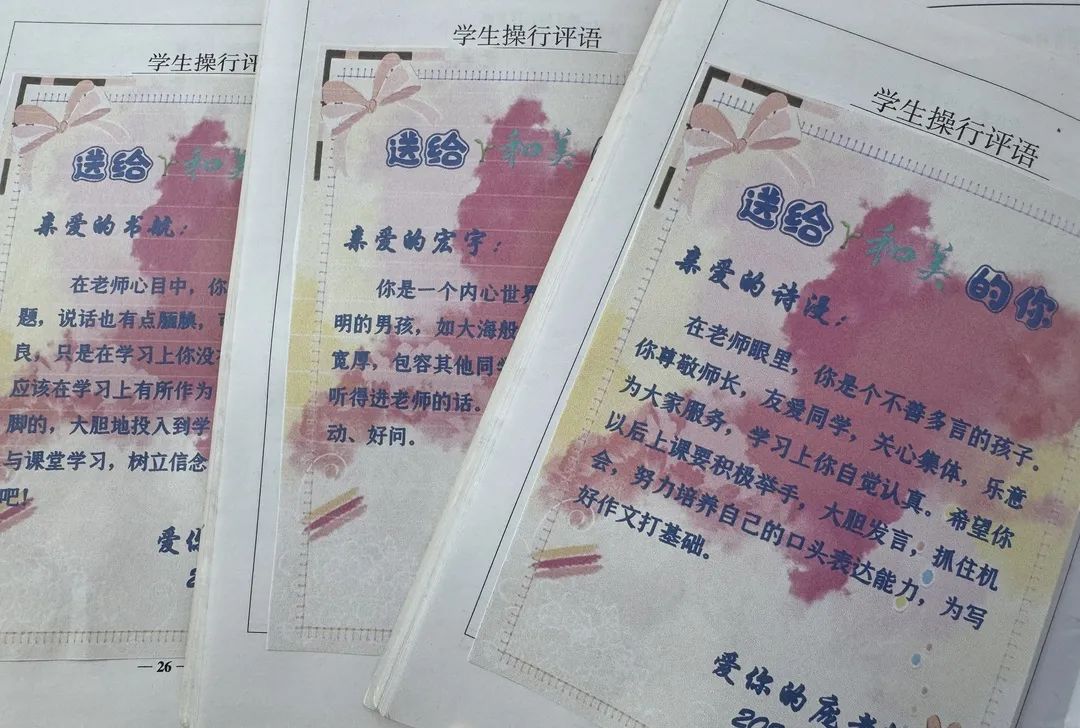 学生操行评
送给
和美
亲爱的书航：
在老师心目中，你
题，说话也有点腼腆，
良，只是在学习上你没
应该在学习上有所作为
脚的，大胆地投入到学
与课堂学习，树立信念
吧！
爱你
2
— 26 -
学生操行评语
送给
和美
亲爱的宏宇：
你是一个内心世界
明的男孩，如大海般
宽厚，包容其他同学
听得进老师的话。
动、好问。
学生操行评语
送给
和美
的你
亲爱的诗漫：
在老师眼里，你是个不善多言的孩子。
你尊敬师长，友爱同学，关心集体，乐意
为大家服务，学习上你自觉认真。希望你
以后上课要积极举手，大胆发言，抓住机
会，努力培养自己的口头表达能力，为写
好作文打基础。
爱你的庞老
202